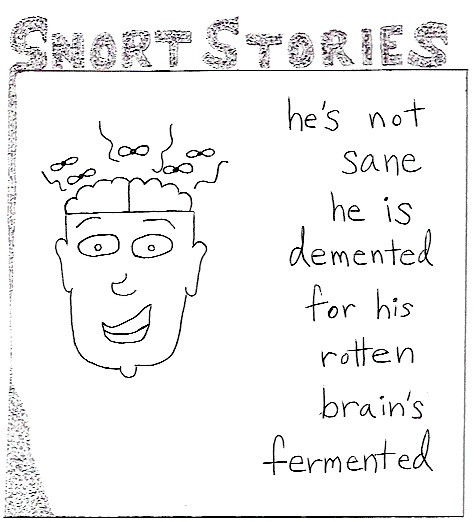 SNORT STORIES
he's not
sane
he is
demented
for his
rotten
brain's
fermented